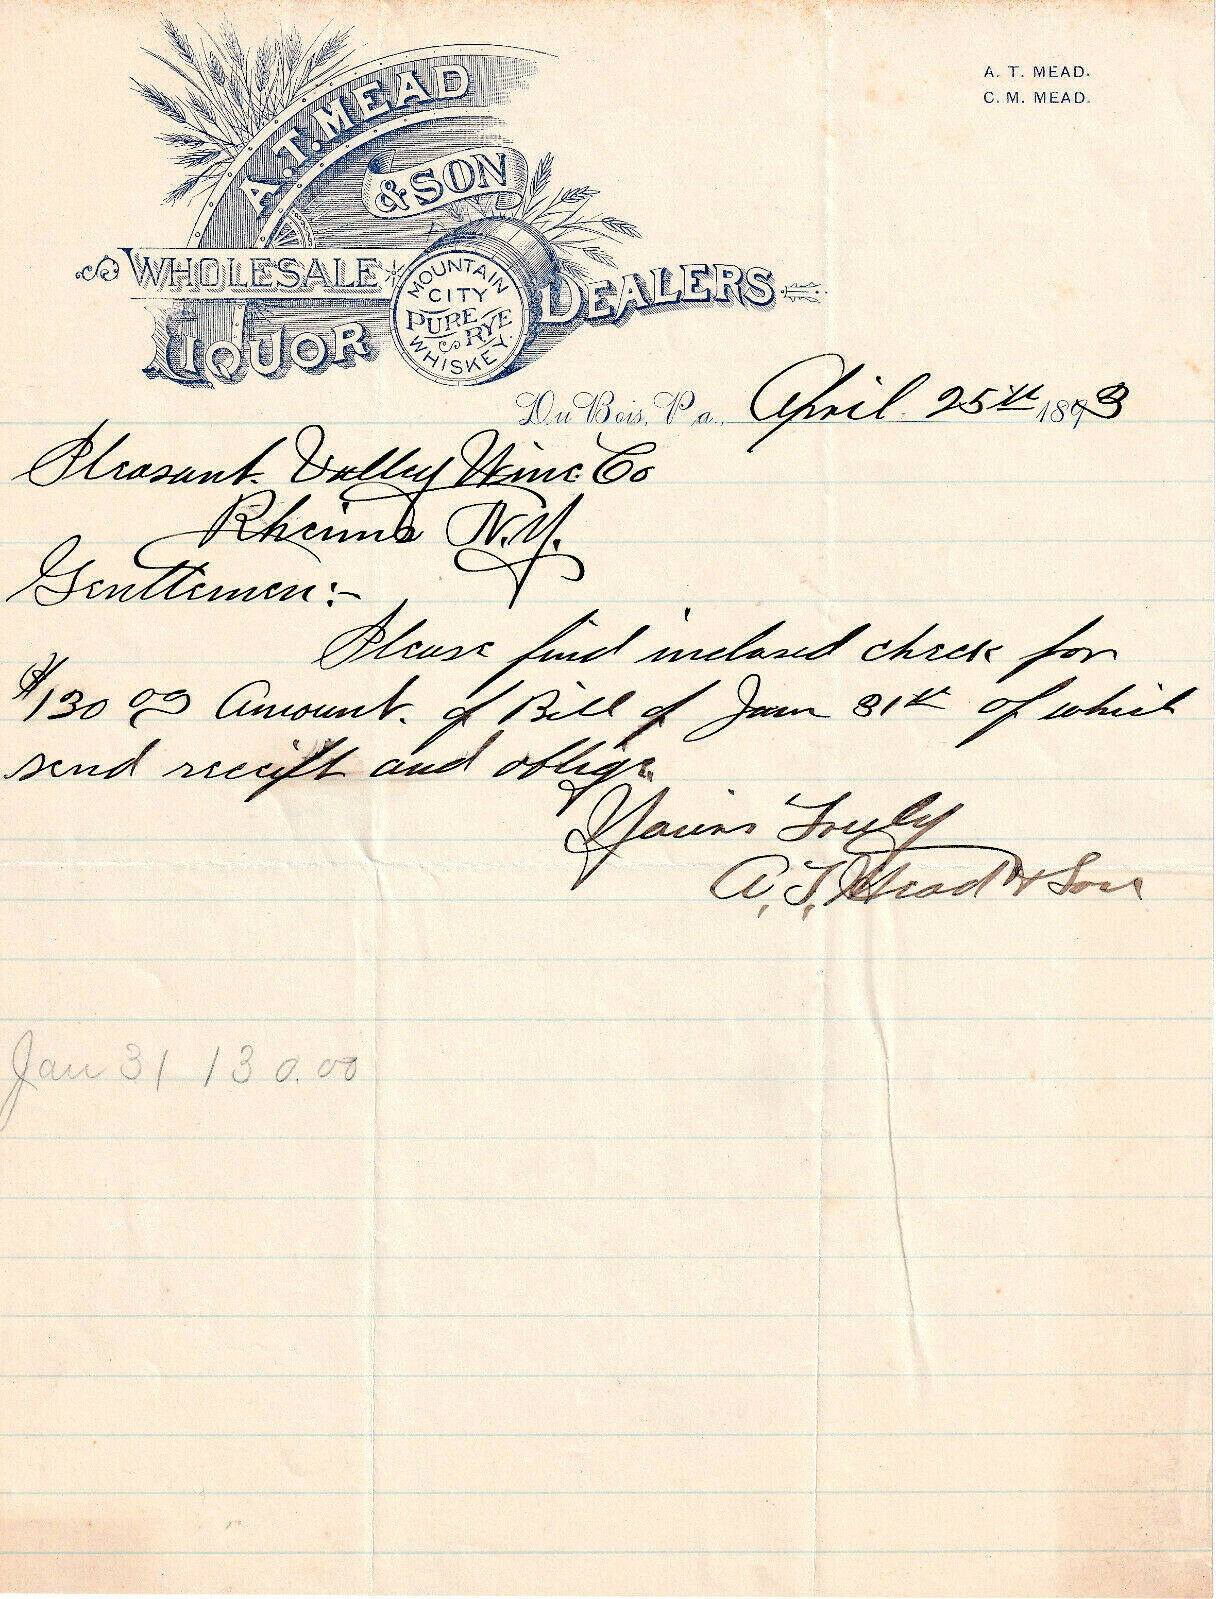 A. T. MEAD
& SON
WHOLESALE
LIQUOR
DEALERS
MOUNTAIN
CITY
PURE
RYE
WHISKEY.
A. T. MEAD.
C. M. MEAD.
Du Bois, Pa., April 25th 1893
Pleasant Valley Wine Co
Rheims N.Y.
Gentlemen:-
Please find inclosed check for
$130 00 Amount of Bill of Jan 31st of which
send receipt and oblige.
Yours Truly
A. T. Mead & Son
Jan 31 130.00